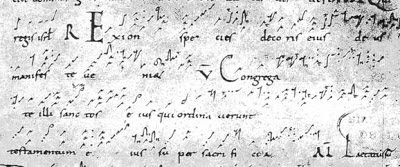 regis isrl R Exion spe cies deco ris eius de us
manifes te ve niet V Congrega
te illi sanc tos e ius qui ordina verunt
testamentum e ius su per sacri fi cia